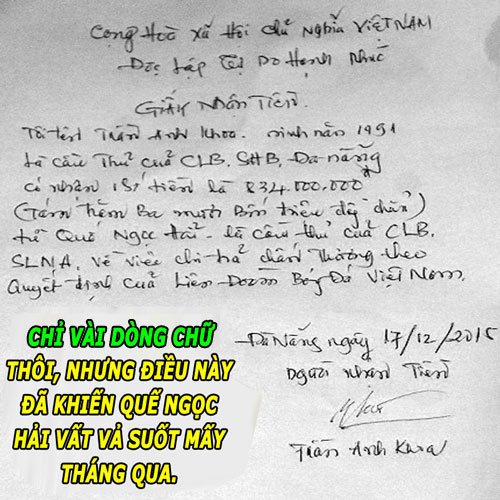 Cộng Hoà xã Hội chủ Nghĩa VIỆT NAM
Độc Lập Tự Do Hạnh Phúc
GIẤY NHẬN TIỀN.
Tôi tên Trần Anh Khoa. sinh năm 1991
là cầu Thủ của CLB. SHB, Đà nẵng
có nhận số tiền là 834.000.000
(Tám Trăm Ba mươi Bốn triệu đồng chẵn)
từ Quế Ngọc Hải - là cầu thủ của CLB.
SLNA. về việc chi trả chấn Thương theo
Quyết định của Liên Đoàn Bóng Đá Việt Nam.
Đà Nẵng ngày 17/12/2015
Người nhận Tiền
Trần Anh Khoa
CHỈ VÀI DÒNG CHỮ
THÔI, NHƯNG ĐIỀU NÀY
ĐÃ KHIẾN QUẾ NGỌC
HẢI VẤT VẢ SUỐT MẤY
THÁNG QUA.